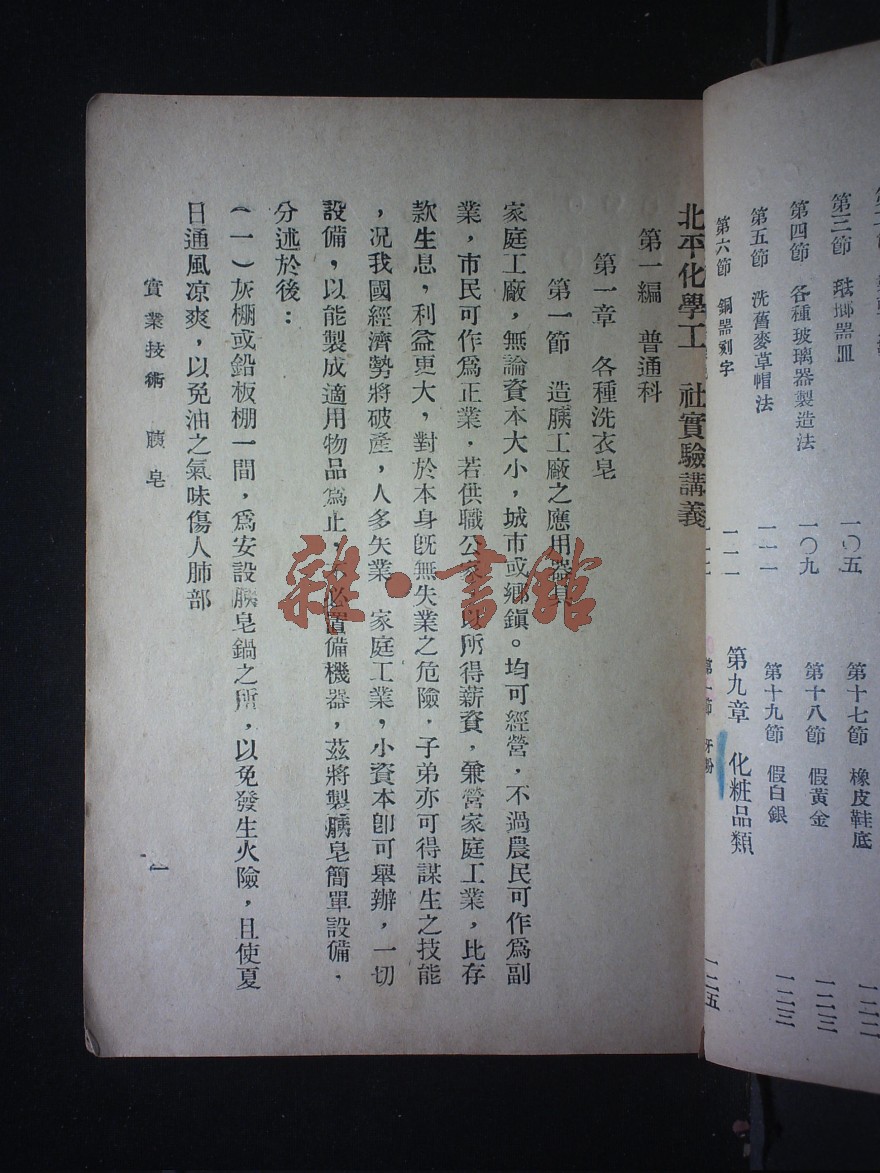 第三節 琺瑯器皿 一〇五
第四節 各種玻璃器製造法 一〇九
第五節 洗舊麥草帽法 一一一
第六節 銅器刻字 一一一
第十七節 橡皮鞋底 一二二
第十八節 假黃金 一二三
第十九節 假白銀 一二三
第九章 化粧品類 一二五
第一節 牙粉
北平化學工 社實驗講義
第一編 普通科
第一章 各種洗衣皂
第一節 造胰工廠之應用器具
家庭工廠,無論資本大小,城市或鄉鎮。均可經營,不過農民可作爲副
業,市民可作爲正業,若供職公家 以所得薪資,兼營家庭工業,比存
款生息,利益更大,對於本身既無失業之危險,子弟亦可得謀生之技能
,况我國經濟勢將破產,人多失業 家庭工業,小資本卽可舉辦,一切
設備,以能製成適用物品爲止,不必置備機器,茲將製胰皂簡單設備,
分述於後:
(一)灰棚或鉛板棚一間,爲安設胰皂鍋之所,以免發生火險,且使夏
日通風凉爽,以免油之氣味傷人肺部
實業技術 胰皂
一
雜·書館